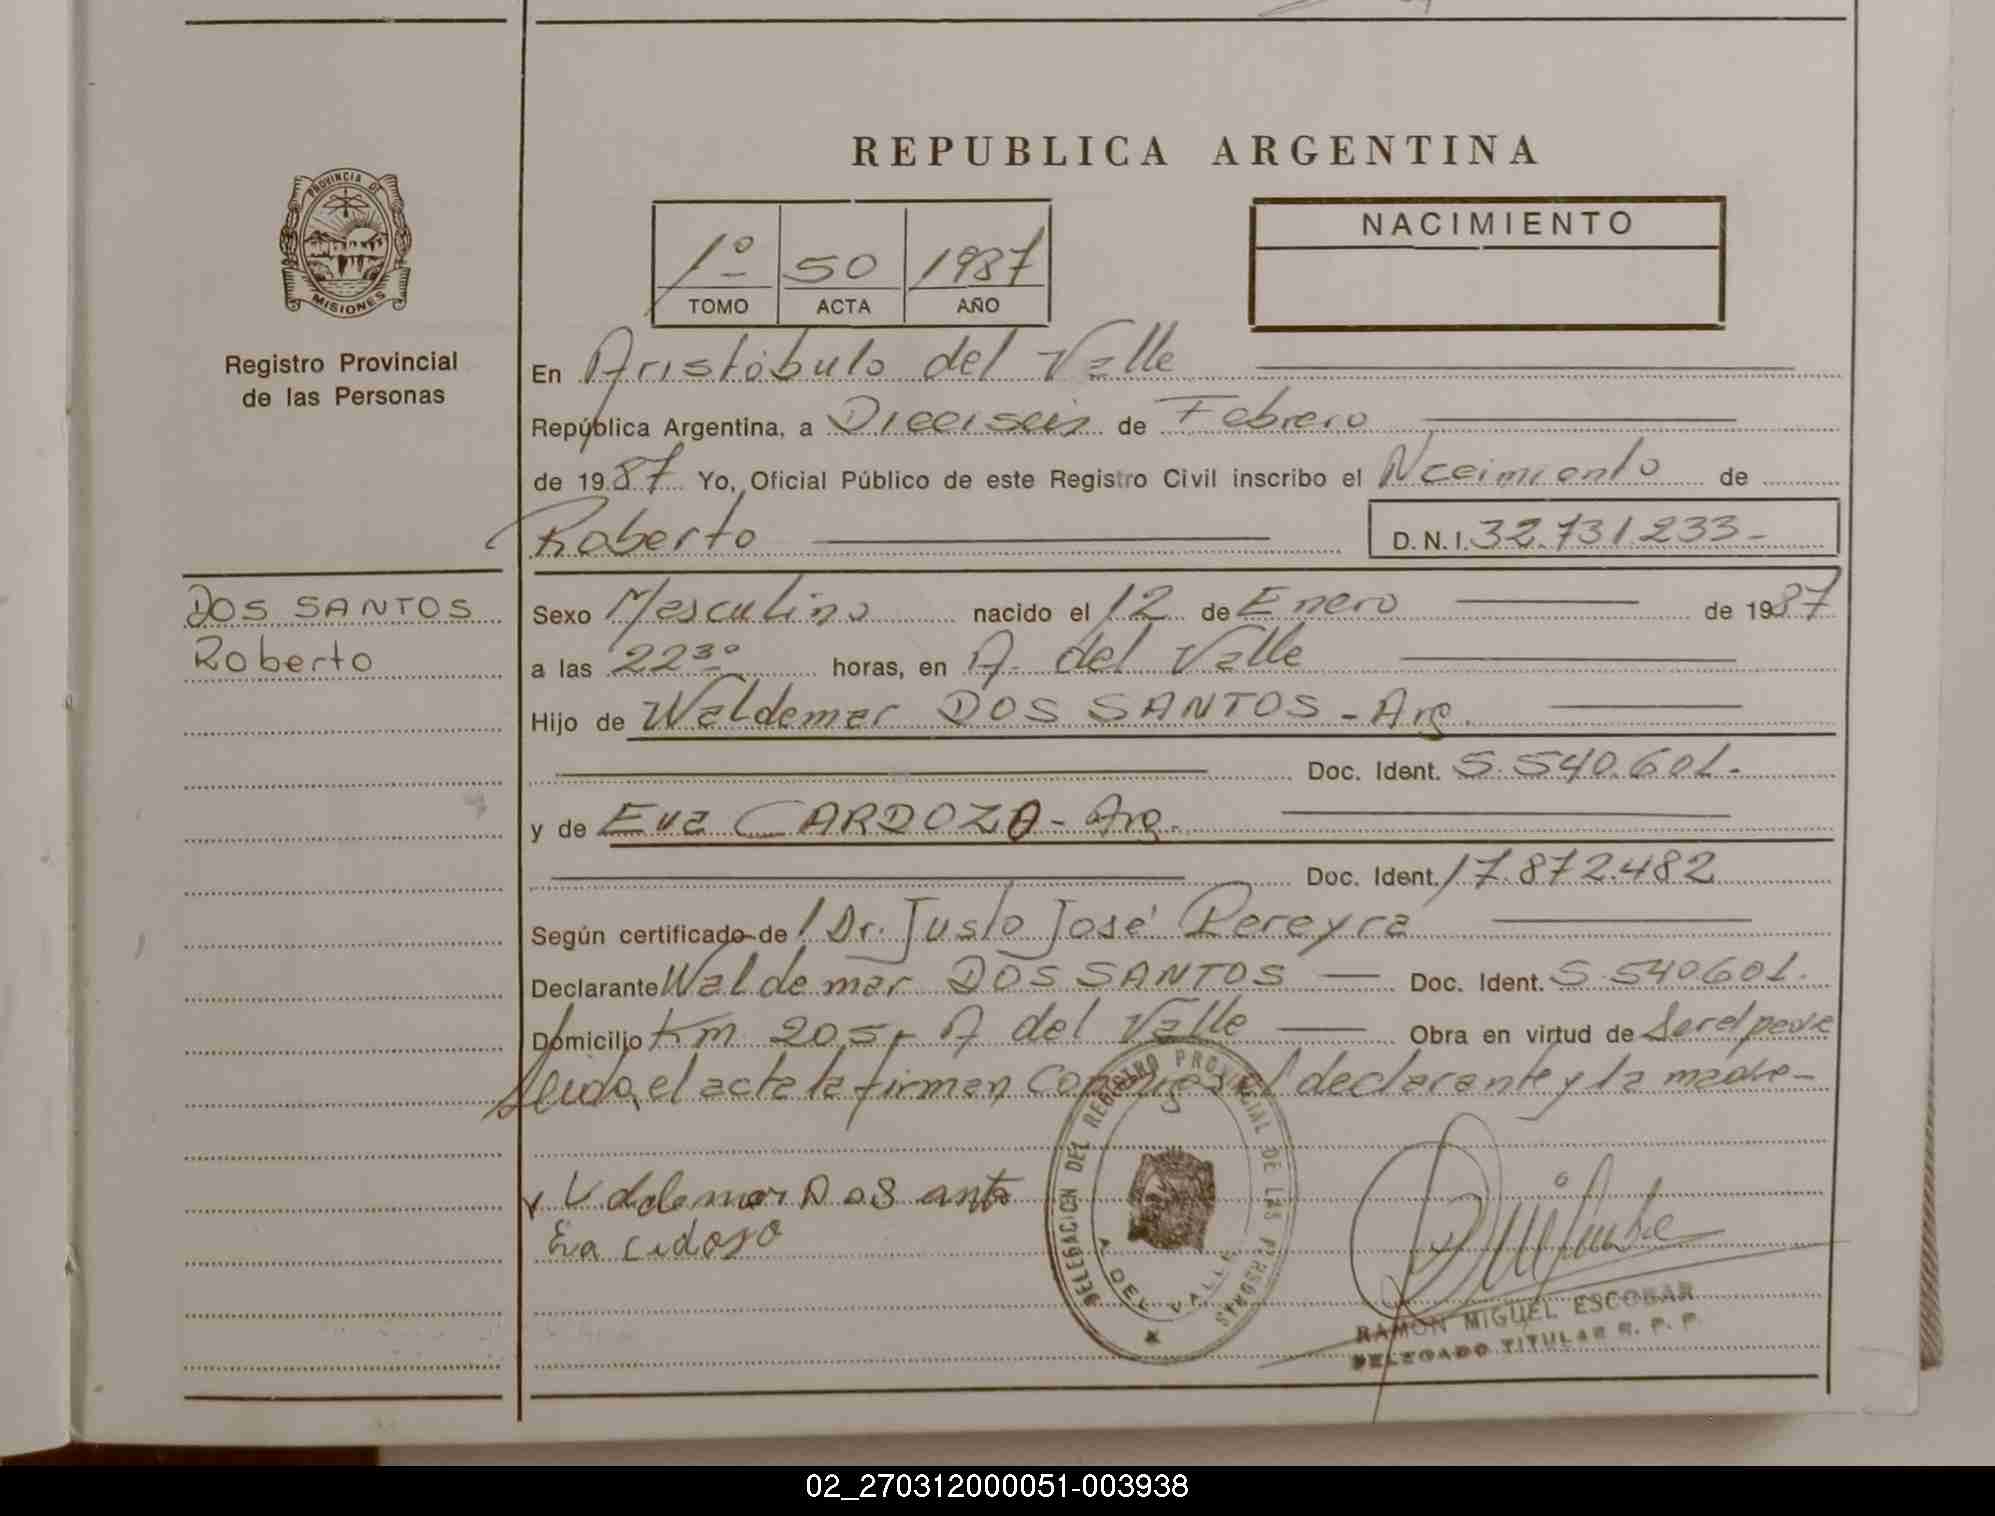 REPUBLICA ARGENTINA
PROVINCIA DE
MISIONES
Registro Provincial
de las Personas
1º 50 1987
TOMO ACTA AÑO
NACIMIENTO
En Aristóbulo del Valle
República Argentina, a Dieciseis de Febrero
de 1987 Yo, Oficial Público de este Registro Civil inscribo el Nceimiento de
Roberto D.N.I. 32.731.233-
DOS SANTOS
Roberto
Sexo Masculino nacido el 12 de Enero de 1987
a las 22³º horas, en A. del Valle
Hijo de Waldemar DOS SANTOS - Arg.
Doc. Ident. 5.540.601.
y de Eva CARDOZO - Arg.
Doc. Ident. 17.872.482
Según certificado de Dr. Justo José Pereyra
Declarante Waldemar DOS SANTOS Doc. Ident. 5.540.601.
Domicilio Km 205 - A del Valle Obra en virtud de Ser el padre
leida, el acta la firman conmigo el declarante y la madre-
Valdemar Dos anto
Eva Cedoso
DELEGACION DEL REGISTRO PROVINCIAL DE LAS PERSONAS
A. DEL VALLE
RAMON MIGUEL ESCOBAR
DELEGADO TITULAR R. P. P.
02_270312000051-003938